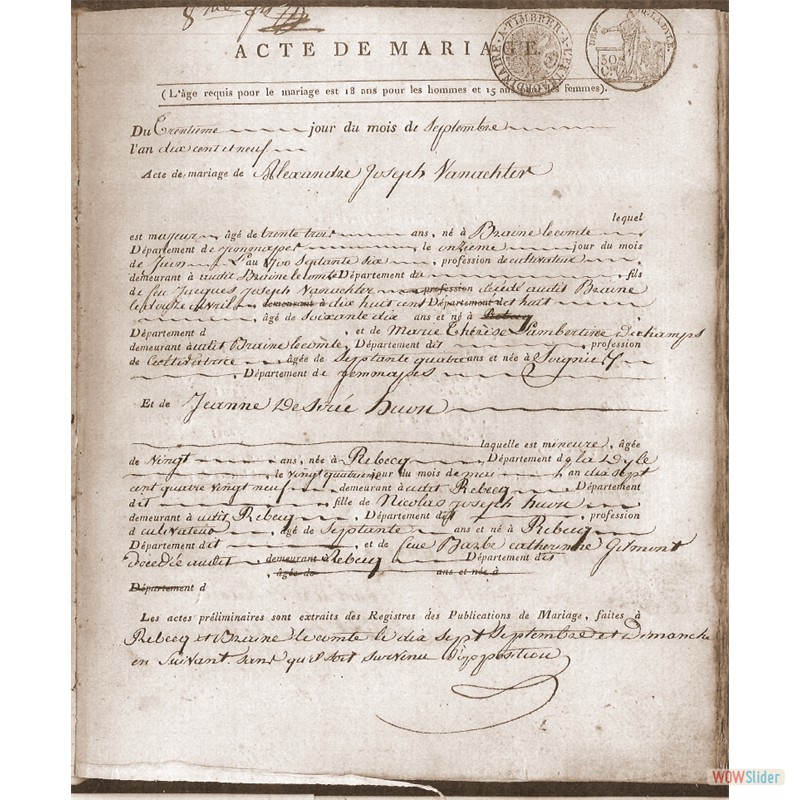 8
ACTE DE MARIAGE.
A·TIMBRER·A·L'EXTRAORDINAIRE
DEP. DE LA DYLE.
50 C.
(L'âge requis pour le mariage est 18 ans pour les hommes et 15 ans les femmes).
Du trentieme jour du mois de Septembre
l'an dix cent et neuf
Acte de mariage de Alexandre Joseph Vanachter
lequel
est majeur, âgé de trente trois ans, né à Braine lecomte
Département de Jemmapes, le onzieme jour du mois
de Juin L'an 1700 Septante Six, profession de cultivateur
demeurant à audit Braine le Comte Département de , fils
de feu Jacques Joseph Vanachter profession décédé audit Braine
le douze avril demeurant à dix huit cent Département de huit
, âgé de Soixante dix ans et né à Rebecq
Département d , et de Marie Thérèse Lambertine Dechamps
demeurant à audit Braine lecomte, Département dit profession
de Cultivatrice, âgée de Septante quatre ans et née à Soignies
Département de Jemmapes
Et de Jeanne Desirée huon
laquelle est mineure, âgée
de Vingt ans, née à Rebecq Département de la Dyle
, le vingt quatrieme jour du mois de mai L'an dix Sept
cent quatre vingt neuf, demeurant à audit Rebecq Département
dit , fille de Nicolas Joseph huon
demeurant à audit Rebecq, Département dit , profession
d cultivateur, âgé de Septante ans et né à Rebecq
Département dit , et de feue Barbe catherinne Gilmont
Décédée audit demeurant à Rebecq Département dit
âgée de ans et née à
Département d
Les actes préliminaires sont extraits des Registres des Publications de Mariage, faites à
Rebecq et Braine le comte le dix Sept Septembre et Dimanche
en Suivant. Sans qu'il Soit Survenu D'opposition
WOWSlider